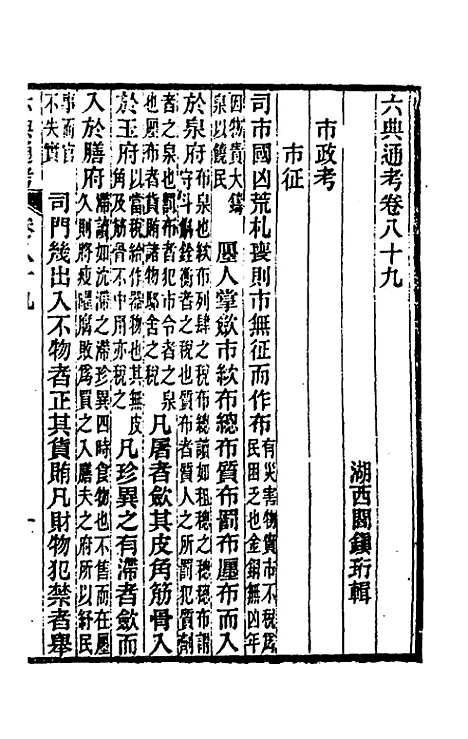 六典通考卷八十九
湖西閻鎮珩輯
市政考
市征
司市國凶荒札喪則市無征而作布有災害物貴市不稅爲民困乏也金銅無凶年
因物貴大鑄泉以饒民 廛人掌斂市絘布總布質布罰布廛布而入
於泉府布泉也絘布列肆之稅布總讀如租穗之穗穗布謂守斗斛銓衡者之稅也質布者質人之所罰犯質劑
者之泉也罰布者犯市令者之泉也廛布者貨賄諸物邸舍之稅 凡屠者斂其皮角筋骨入
於玉府以當稅給作器物也其無皮角及筋骨不中用亦稅之 凡珍異之有滯者斂而
入於膳府滯讀如沈滯之滯珍異四時食物也不售而在廛久則將瘦臞腐敗爲買之入膳夫之府所以紓民
事而官不失實 司門幾出入不物者正其貨賄凡財物犯禁者舉
六典通考 卷八十九 一